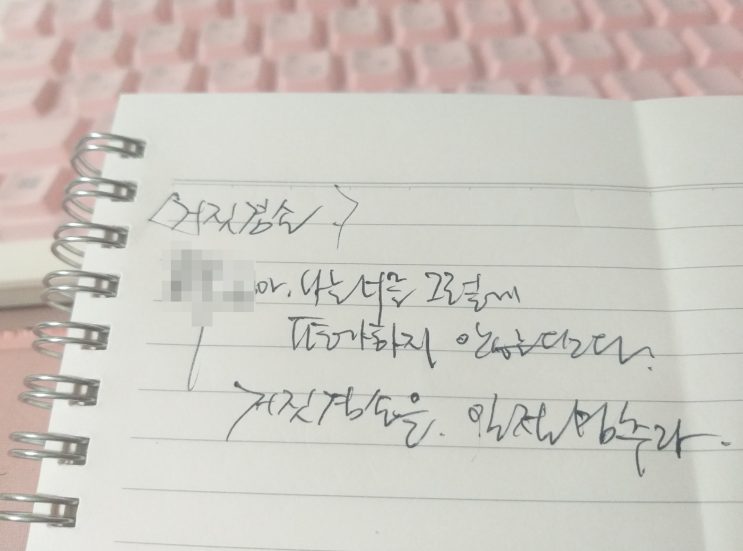 <거짓겸손>
아. 나는 너를 그렇게
평가하지 않는단다.
거짓겸손을. 일절 멈추라.